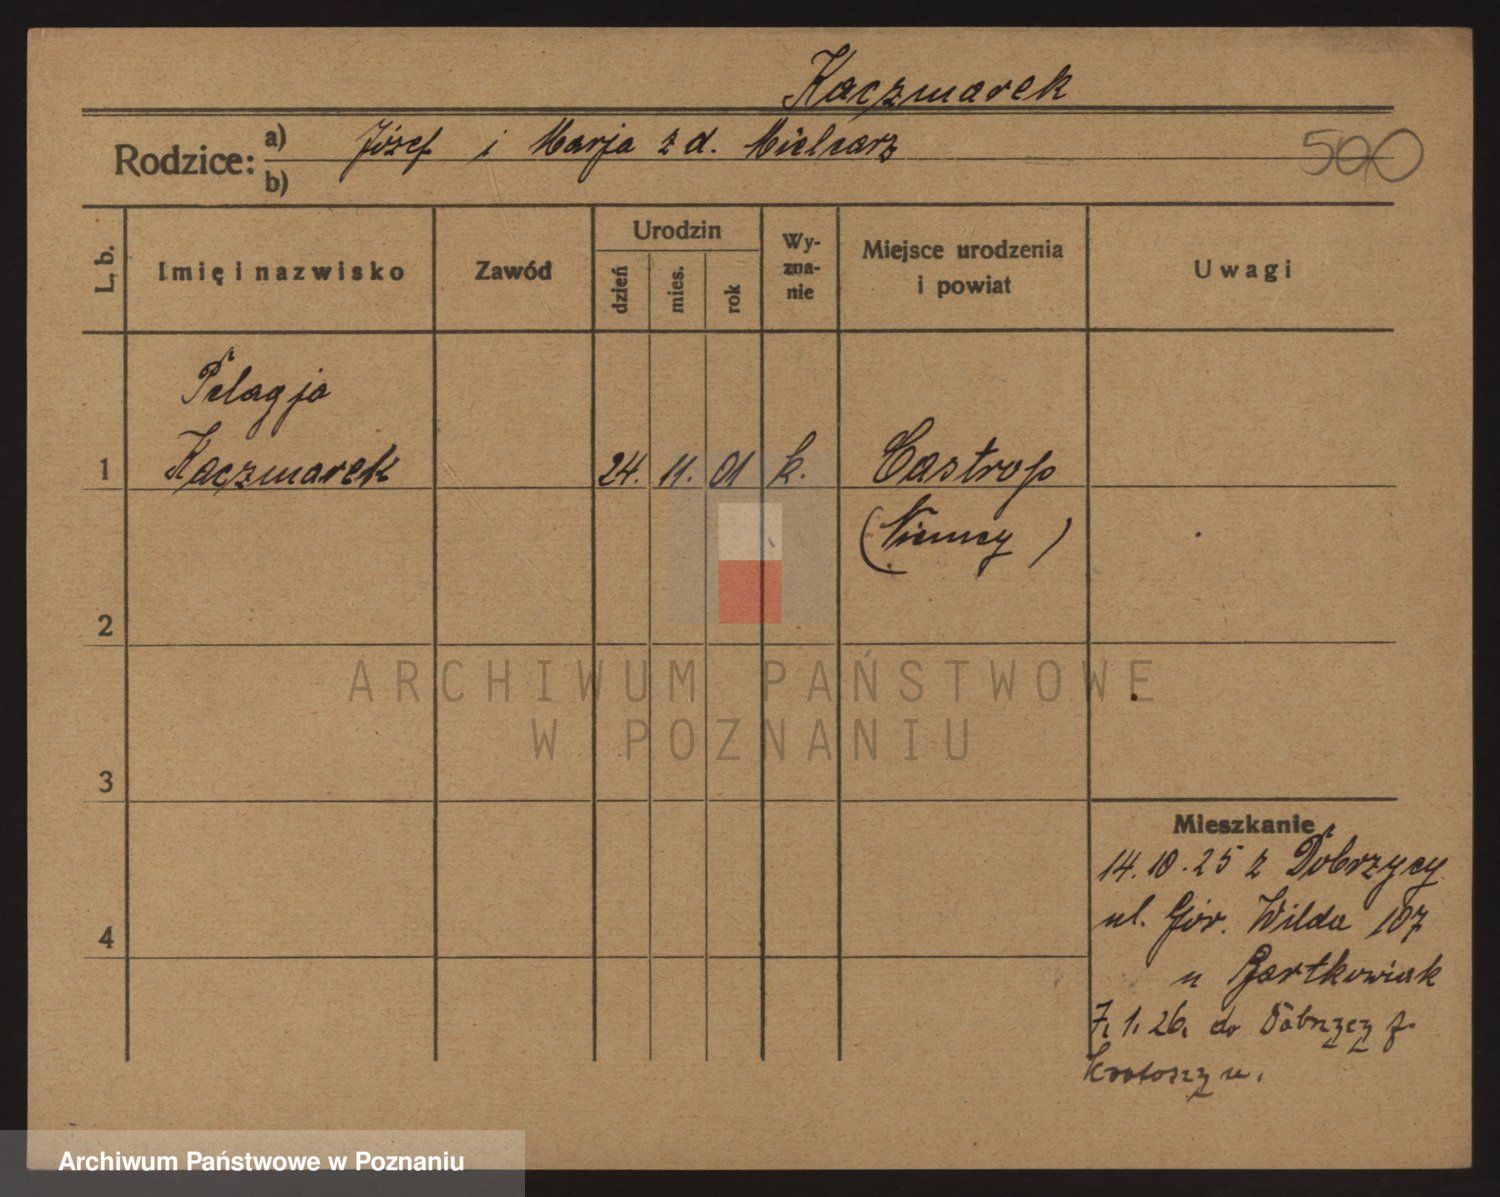 Kaczmarek
Rodzice: a) Józef i Marja z d. Mielcarz
b)
500
L. b.
Imię i nazwisko
Zawód
Urodzin
dzień
mies.
rok
Wy-
zna-
nie
Miejsce urodzenia
i powiat
Uwagi
Pelagja
1 Kaczmarek 24. 11. 01 k. Castrop
(Niemcy)
2
ARCHIWUM PAŃSTWOWE
W POZNANIU
3
Mieszkanie
14.10.25 z Dobrzycy
ul. Gór. Wilda 107
4
u Bartkowiak
7.1.26. do Dobrzycy p.
Krotoszyn.
Archiwum Państwowe w Poznaniu